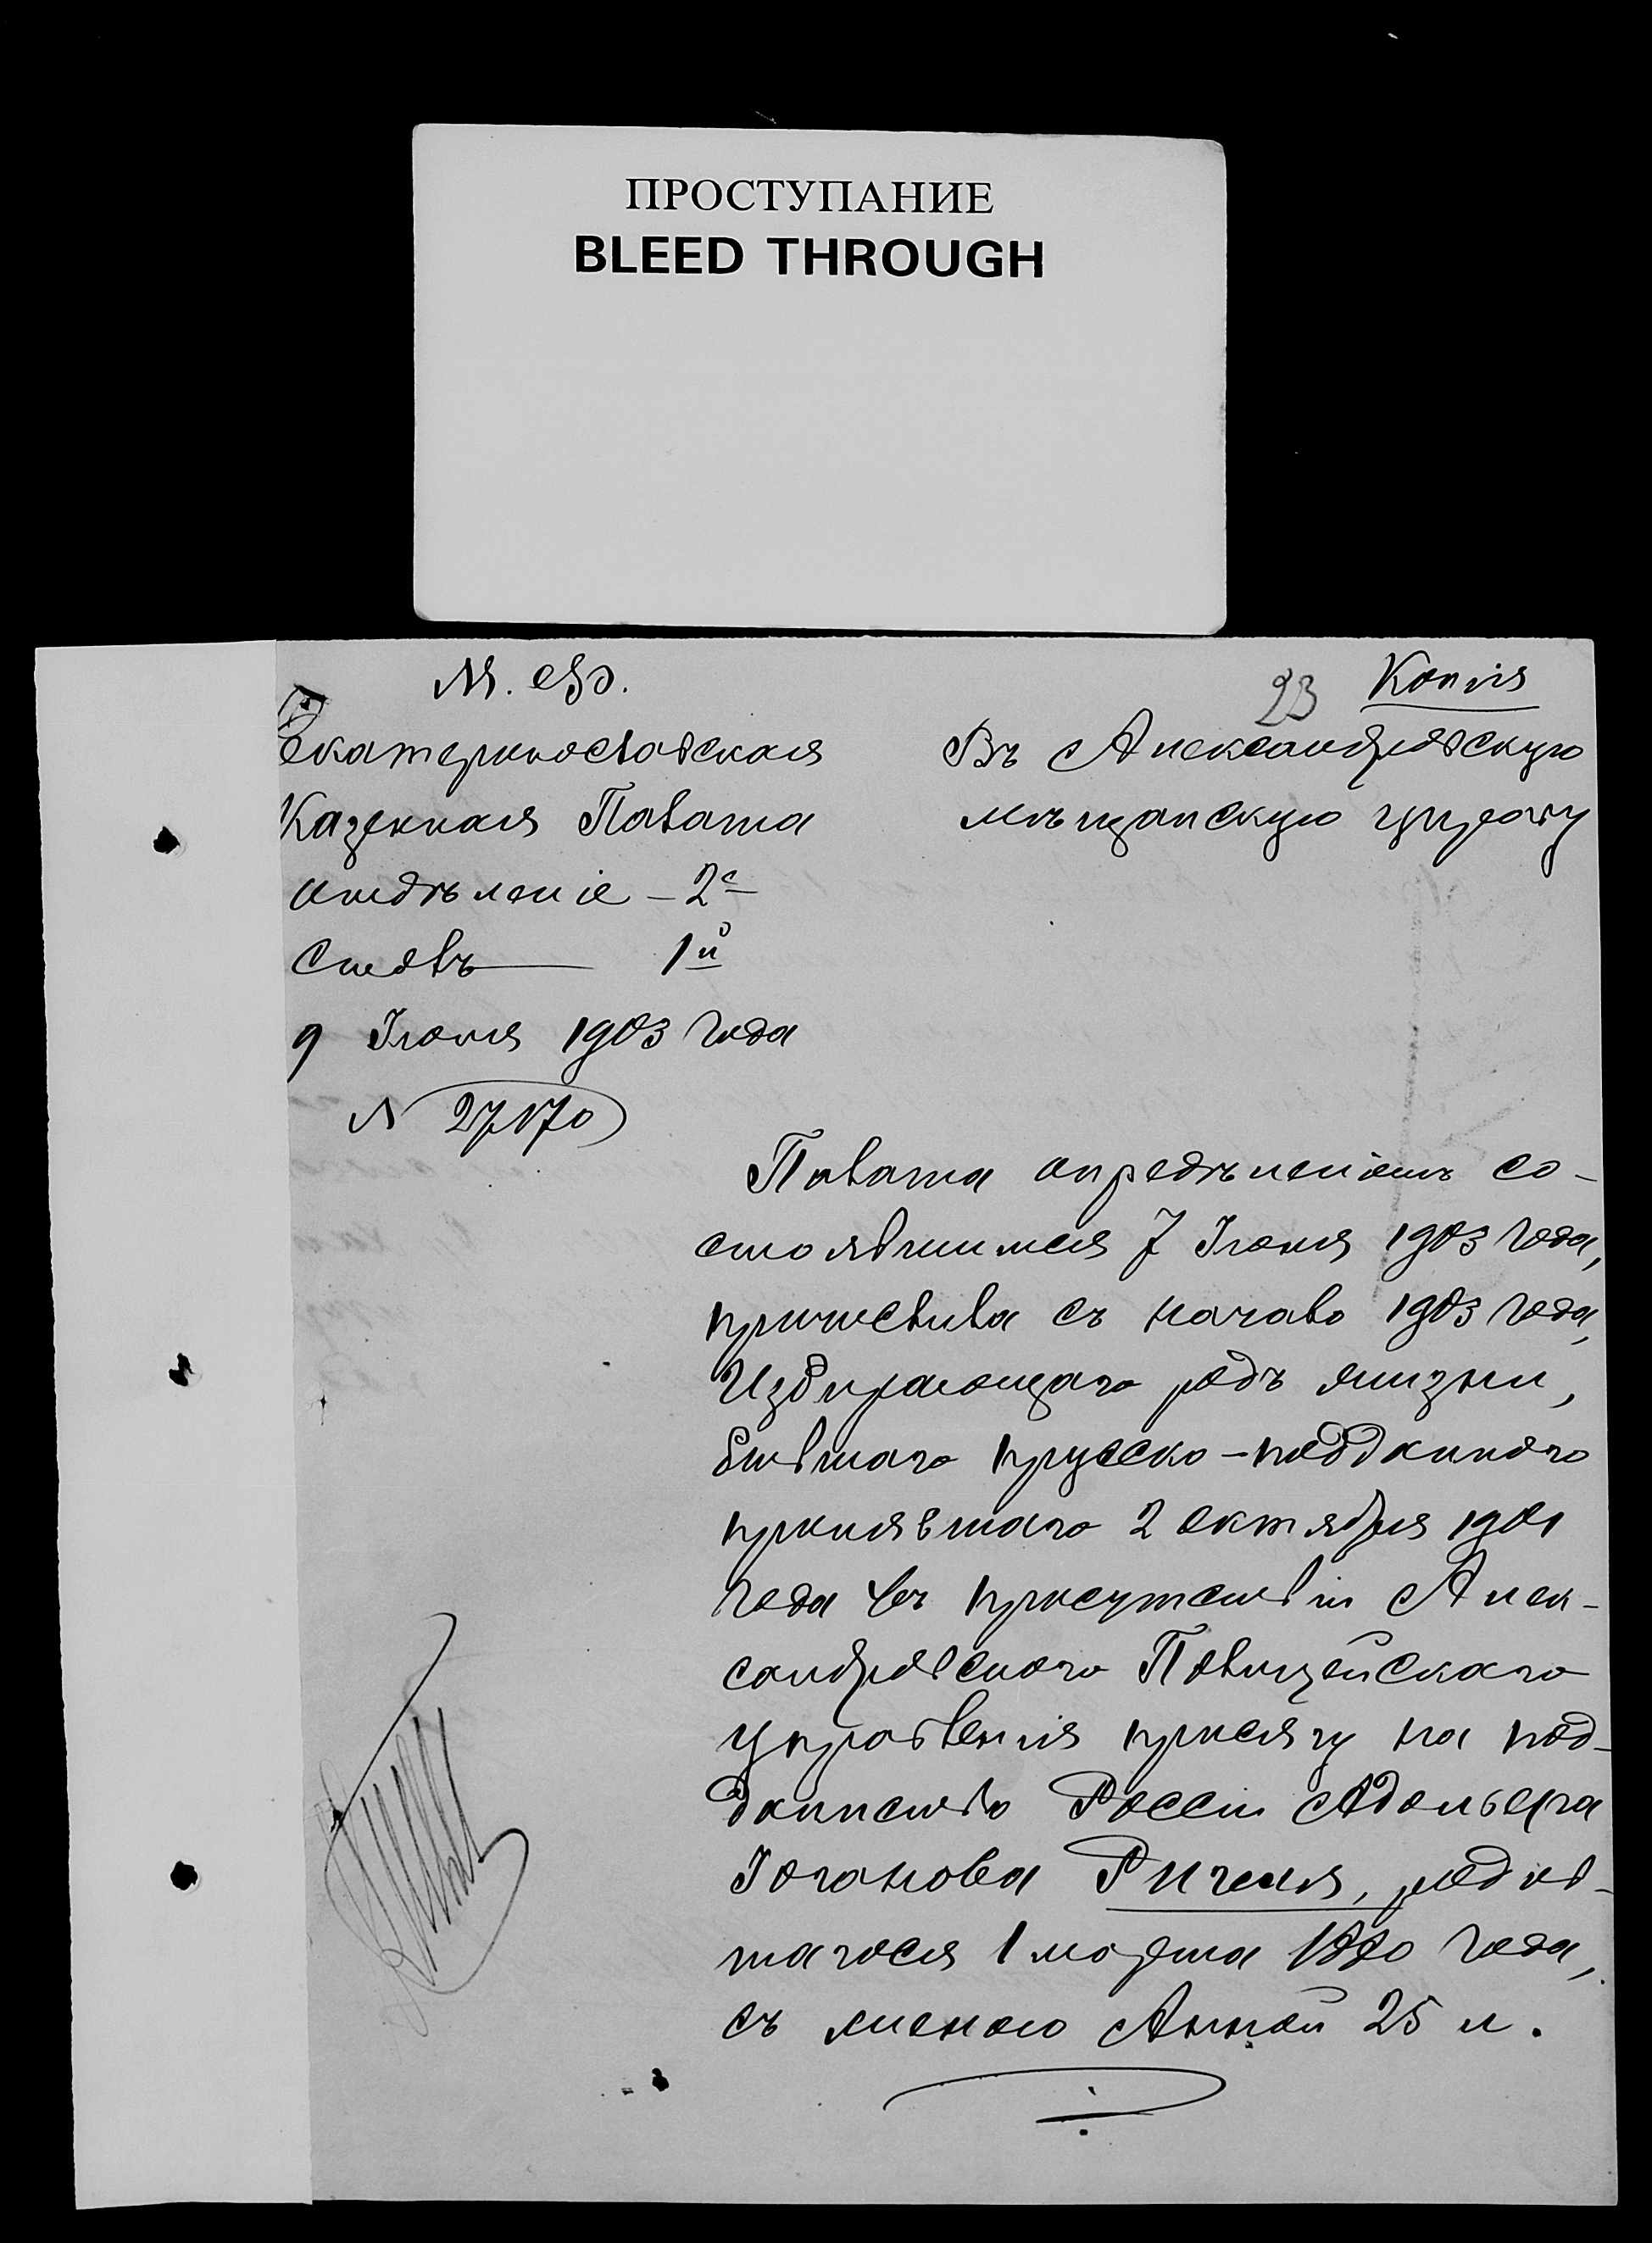 ПРОСТУПАНИЕ
BLEED THROUGH
М. Ф.
23 Копія
Екатеринославская
Казенная Палата
отдѣленіе – 2е
Столъ – 1й
9 Іюня 1903 года
N 27170
Въ Александровскую
мѣщанскую управу
Палата опредѣленіемъ со-
стоявшимся 7 Іюня 1903 года,
причислила съ начала 1903 года,
Избирающаго родъ жизни,
бывшаго прусско-подданнаго
принявшаго 2 октября 1901
года въ присутствіи Алек-
сандровскаго Полицейскаго
Управленія присягу на под-
данство Россіи Адольфа
Іоганова Ригеля, родив-
шагося 1 марта 1870 года,
съ женою Анной 25 л.